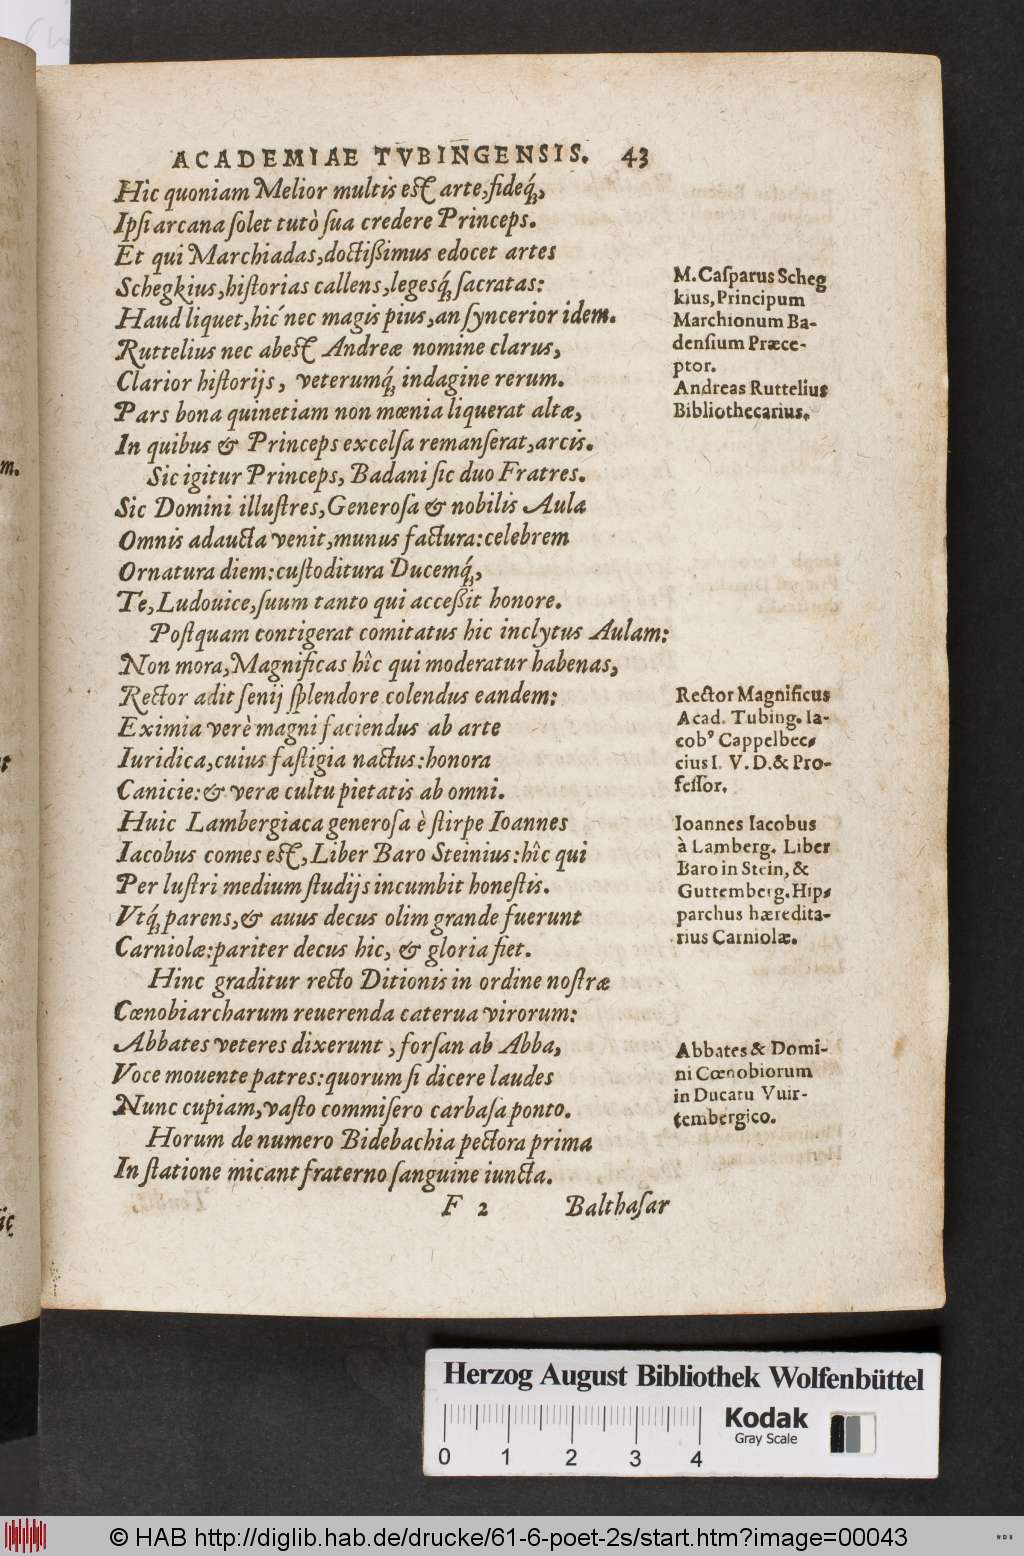 ACADEMIAE TVBINGENSIS. 43
Hic quoniam Melior multis est arte, fideq́;,
Ipsi arcana ſolet tutò ſua credere Princeps.
Et qui Marchiadas, doctißimus edocet artes
Schegkius, hiſtorias callens, legesq́; ſacratas:
Haud liquet, hic nec magis pius, an ſyncerior idem.
Ruttelius nec abest Andreæ nomine clarus,
Clarior hiſtorijs, veterumq́; indagine rerum.
Pars bona quinetiam non mœnia liquerat altæ,
In quibus & Princeps excelſa remanſerat, arcis.
Sic igitur Princeps, Badani ſic duo Fratres.
Sic Domini illuſtres, Generoſa & nobilis Aula
Omnis adaucta venit, munus factura: celebrem
Ornatura diem: cuſtoditura Ducemq́;,
Te, Ludouice, ſuum tanto qui acceßit honore.
Poſtquam contigerat comitatus hic inclytus Aulam:
Non mora, Magnificas hîc qui moderatur habenas,
Rector adit ſenij ſplendore colendus eandem:
Eximia verè magni faciendus ab arte
Iuridica, cuius faſtigia nactus: honora
Canicie: & veræ cultu pietatis ab omni.
Huic Lambergiaca generoſa è ſtirpe Ioannes
Iacobus comes est, Liber Baro Steinius: hîc qui
Per luſtri medium ſtudijs incumbit honeſtis.
Vtq́; parens, & auus decus olim grande fuerunt
Carniolæ: pariter decus hic, & gloria fiet.
Hinc graditur recto Ditionis in ordine noſtræ
Cœnobiarcharum reuerenda caterua virorum:
Abbates veteres dixerunt, forſan ab Abba,
Voce mouente patres: quorum ſi dicere laudes
Nunc cupiam, vaſto commiſero carbaſa ponto.
Horum de numero Bidebachia pectora prima
In ſtatione micant fraterno ſanguine iuncta.
F 2 Balthaſar
M. Caſparus Scheg
kius, Principum
Marchionum Ba-
denſium Præce-
ptor.
Andreas Ruttelius
Bibliothecarius.
Rector Magnificus
Acad. Tubing. Ia-
cob⁹ Cappelbec-
cius I. V. D. & Pro-
feſſor.
Ioannes Iacobus
à Lamberg. Liber
Baro in Stein, &
Guttemberg. Hip-
parchus hæredita-
rius Carniolæ.
Abbates & Domi-
ni Cœnobiorum
in Ducatu Vuir-
tembergico.
Herzog August Bibliothek Wolfenbüttel
Kodak
Gray Scale
0 1 2 3 4
© HAB http://diglib.hab.de/drucke/61-6-poet-2s/start.htm?image=00043